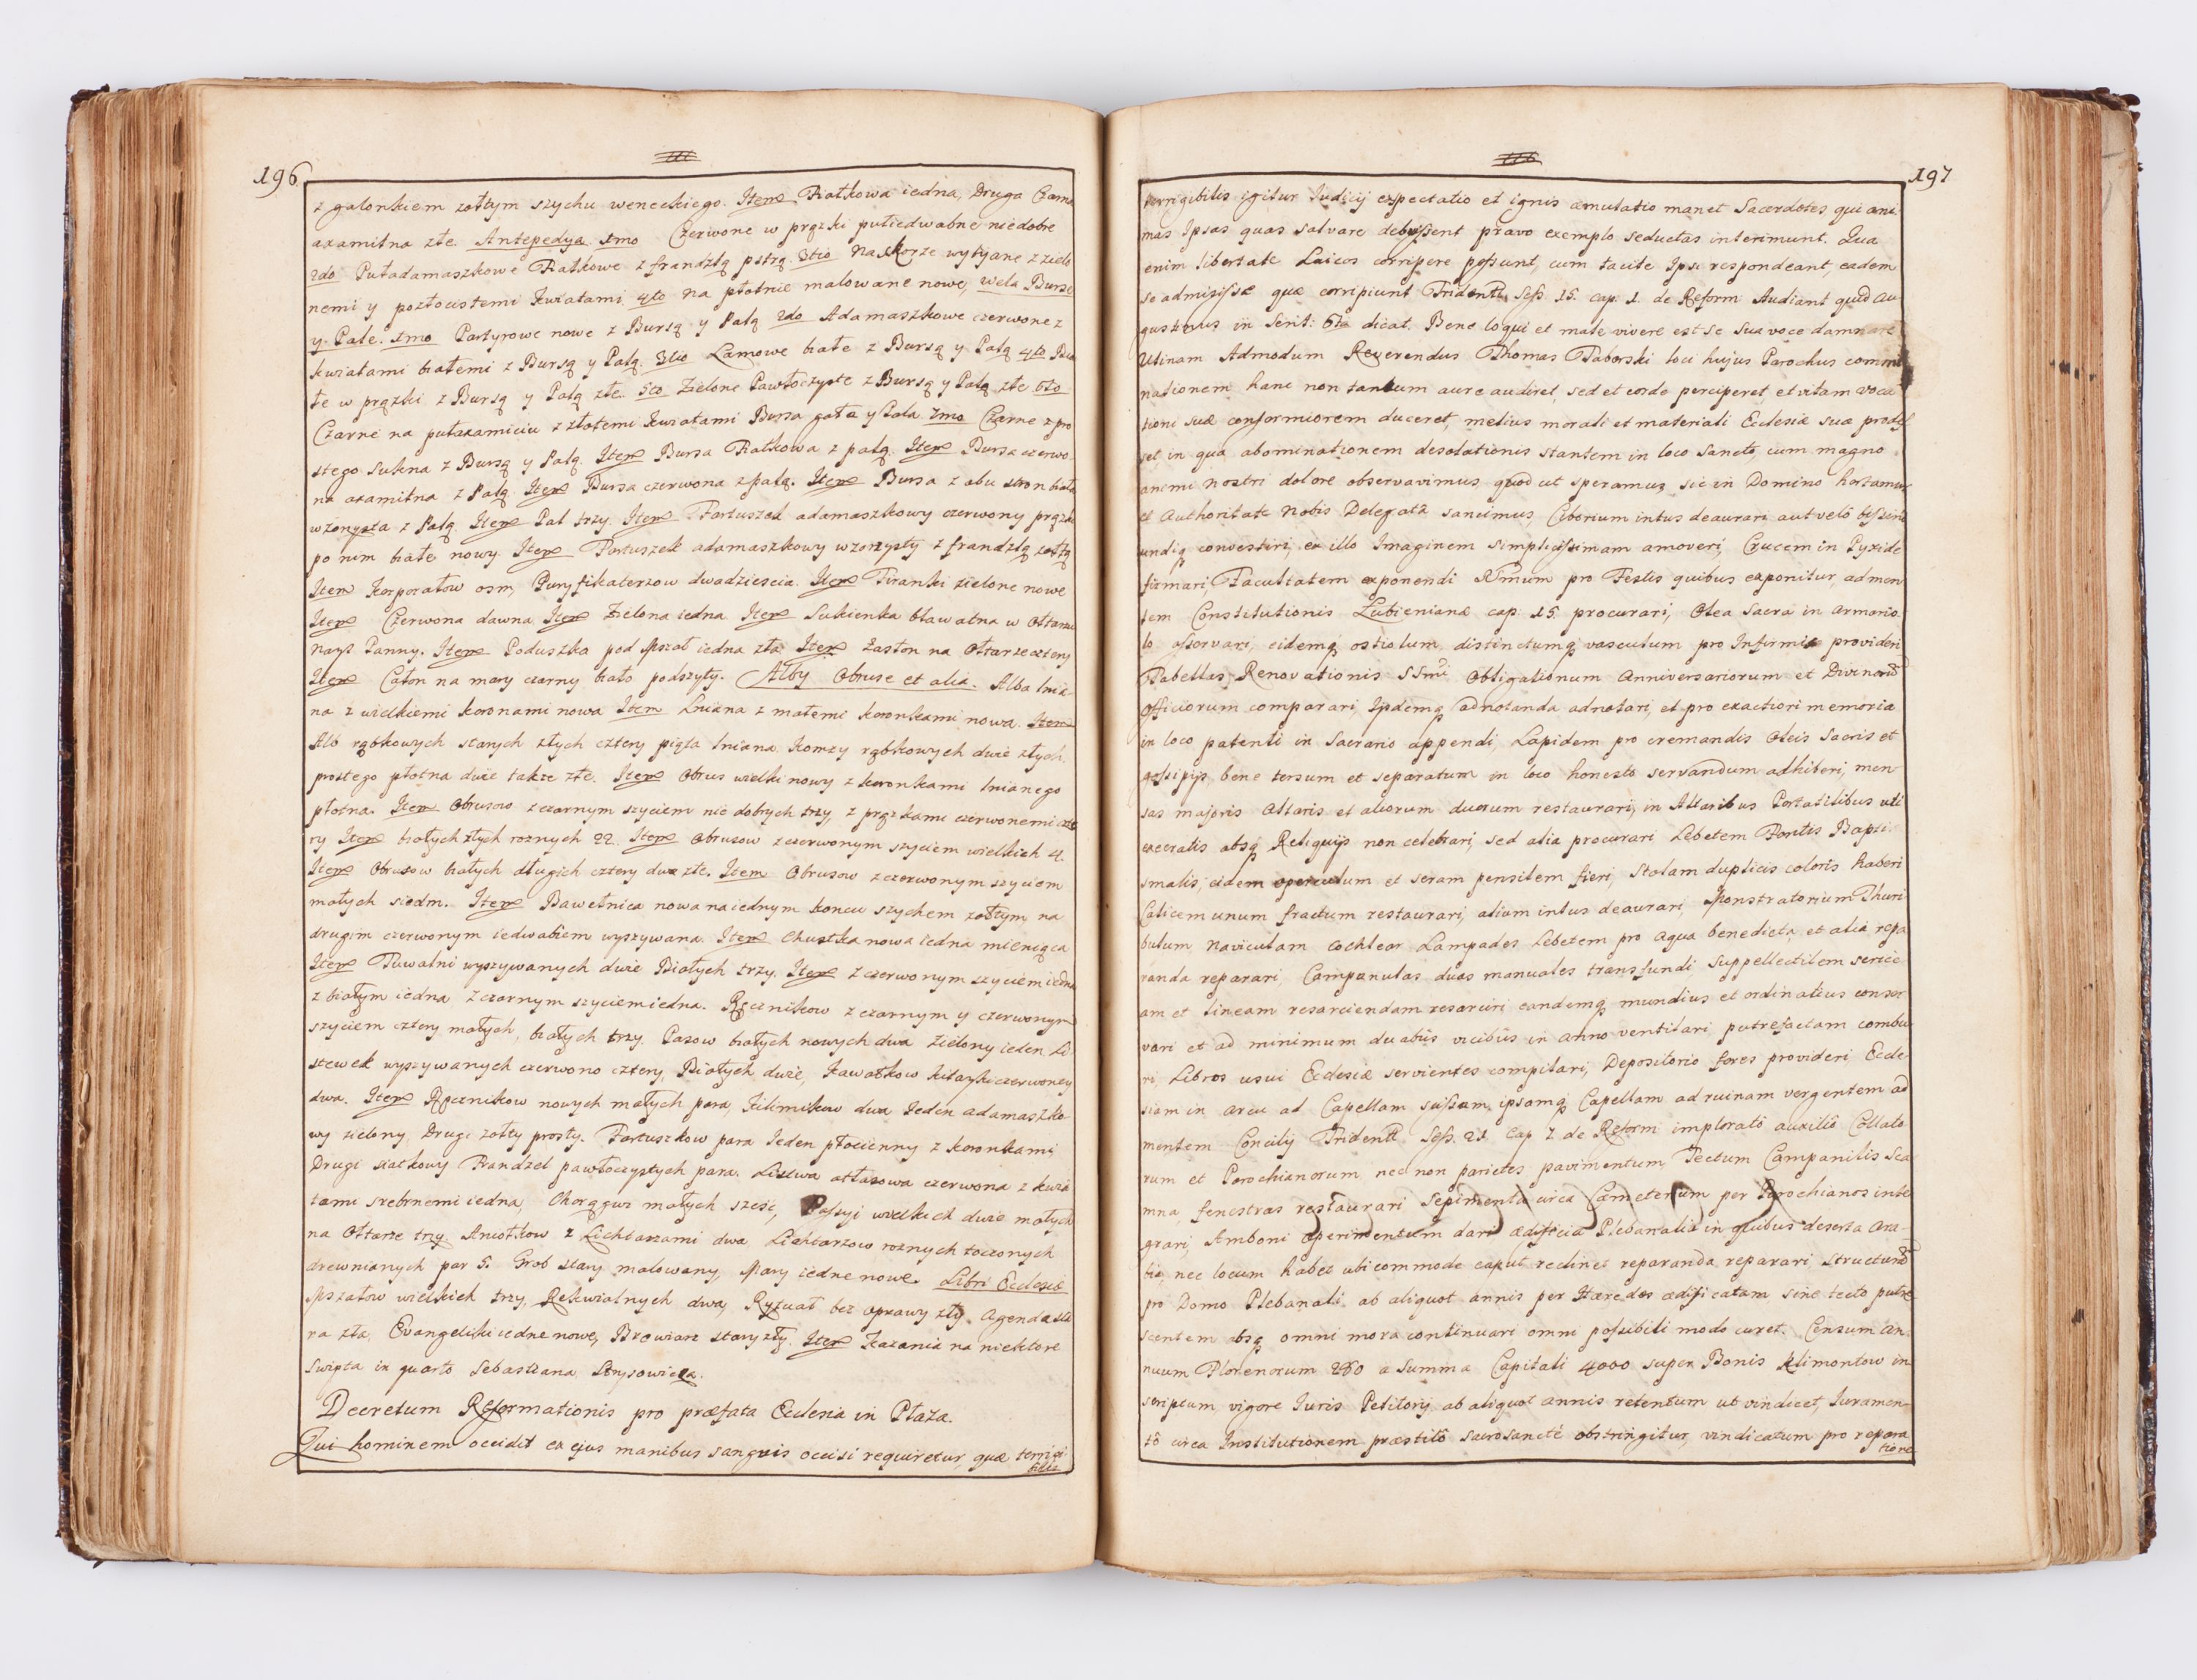 196
z galonkiem zołtym szychu weneckiego. Item Fiałkowa iedna, Druga Czarna
axamitna złe. Antepedya 1mo Czerwone w prązki pułiedwabne niedobre
2do Puładamaszkowe Fiałkowe z frandzlą pstrą. 3tio Na skorze wybiiane z zielo
nemi y pozłocistemi kwiatami 4to na płotnie malowane nowe, Wela Burse
y Pale. 1mo Partyrowe nowe z Bursą y Palą 2do Adamaszkowe czerwone z
kwiatami białemi z Bursą y Palą. 3tio Lamowe białe z Bursą y Palą 4to Bia
łe w prązki z Bursą y Palą złe. 5to Zielone Pawłoczyste z Bursą y Palą złe 6to
Czarne na pułaxamiciu z złotemi kwiatami Bursa gała y Pala 7mo Czarne z pro
stego sukna z Bursą y Palą. Item Bursa Fiałkowa z palą. Item Bursa czerwo
na axamitna z Palą. Item Bursa czerwona z palą. Item Bursa z obu stron biała
wzorzysta z Palą. Item Pal trzy. Item Fartuszek adamaszkowy czerwony prązki
po nim białe nowy. Item Fartuszek adamaszkowy wzorzysty z frandzlą zołtą
Item Korporałow osm, Puryfikaterzow dwadziescia. Item Firanki zielone nowe
Item Czerwona dawna Item Zielona iedna Item Sukienka bławatna w Ołtarzu
Nays Panny. Item Poduszka pod Mszał iedna zła Item Zasłon na Ołtarze cztery
Item Całon na mary czarny biało podszyty. Alby Obruse et alia. Alba lnia
na z wielkiemi koronami nowa Item Lniana z małemi koronkami nowa. Item
Alb rąbkowych starych złych cztery piąta lniana Komzy rąbkowych dwie złych
prostego płotna dwie takze złe. Item Obrus wielki nowy z koronkami lnianego
płotna. Item Obrusow z czarnym szyciem nie dobrych trzy, z prązkami czerwonemi czte
ry Item białych złych roznych 22. Item Obrusow z czerwonym szyciem wielkich 4.
Item Obrusow białych długich cztery dwa złe. Item Obrusow z czerwonym szyciem
małych siedm. Item Bawełnica nowa na iednym koncu szychem zołtym na
drugim czerwonym iedwabiem wyszywana. Item Chustka nowa iedna mieniąca
Item Tuwalni wyszywanych dwie Białych trzy. Item z czerwonym szyciem iedna
z białym iedna z czarnym szyciem iedna. Ręcznikow z czarnym y czerwonym
szyciem cztery małych, białych trzy. Pasow białych nowych dwa Zielony ieden Li
stewek wyszywanych czerwono cztery, Białych dwie, Kawałkow kitayki czerwoney
dwa. Item Ręcznikow nowych małych para, Kilimkow dwa Ieden adamaszko
wy zielony, Drugi zołty prosty. Fartuszkow para Ieden płocienny z koronkami
Drugi siatkowy Frandzel pawłoczystych para. Listwa atłasowa czerwona z kwia
tami srebrnemi iedna, Chorągwi małych sześć, Passyi wielkich dwie małych
na Ołtarze trzy. Aniołkow z Lichtarzami dwa Lichtarzow roznych toczonych
drewnianych par 5. Grob stary malowany, Mary iedne nowe. Libri Ecclesiæ
Mszałow wielkich trzy, Rekwialnych dwa, Rytuał bez oprawy zły. Agenda sta
ra zła, Evangeliki iedne nowe, Brewiarz stary zły. Item Kazania na niektore
Swięta in quarto Sebastiana Strysowicza.
Decretum Reformationis pro præfata Ecclesia in Płaza.
Qui hominem occidit ex ejus manibus sanguis occisi requiretur, quæ terrigi
bilis
197
terrigibilis igitur Iudicij expectatio et ignis æmulatio manet Sacerdotes qui ani
mas Ipsas quas salvare debuissent pravo exemplo seductas interimunt. Qua
enim libertate Laicos corripere possunt, cum tacite Ipsi respondeant, eadem
se admisisse quæ corripiunt Trident: Sess. 15. cap. 1. de Reform Audiant quid Au
gustinus in Senti: 6ta dicat. Bene loqui et male vivere est se sua voce damnare
Utinam Admodum Reverendus Thomas Taborski loci hujus Parochus commi
nationem hanc non tantum aure audiret, sed et corde perciperet, et vitam voca
tioni suæ conformiorem duceret, melius morali et materiali Ecclesiæ suæ prodes
set in qua abominationem desolationis stantem in loco Sancto, cum magno
animi nostri dolore observavimus quod ut speramus, sic in Domino hortamur
et Authoritate Nobis Delegata sancimus, Ciborium intus deaurari aut velo byssino
undiq convestiri, ex illo Imaginem simplicissimam amoveri, Crucem in Pyxide
firmari, Facultatem exponendi SSmum pro Festis quibus exponitur, ad men
tem Constitutionis Lubienianæ cap. 15. procurari, Olea Sacra in armario
lo asservari, eidemq ostiolum, distinctumq vasculum pro Infirmis provideri
Tabellas Renovationis SSmi Obligationum Anniversariorum et Divinorũ
Officiorum comparari, Ipsdemq adnotanda adnotari, et pro exactiori memoria
in loco patenti in Sacrario appendi, Lapidem pro cremandis Oleis Sacris et
gossipijs bene tersum et separatum in loco honesto servandum adhiberi, men
sas majoris Altaris et aliorum duorum restaurari, in Altaribus Portatilibus uti
execratis absq Reliquijs non celebrari, sed alia procurari Lebetem Fontis Bapti
smalis, eidem operculum et seram pensilem fieri, Stolam duplicis coloris haberi
Calicem unum fractum restaurari, alium intus deaurari, Monstratorium Thuri
bulum, Naviculam Cochlear Lampades Lebetem pro aqua benedicta, et alia repa
randa reparari, Campanulas duas manuales transfundi Suppellectilem serice
am et lineam resarciendam resarciri eandemq mundius et ordinatius conser
vari et ad minimum duabus vicibus in anno ventilari putrefactam combu
ri, Libros usui Ecclesiæ servientes compilari, Depositorio fores provideri Eccle
siam in arcu ad Capellam scissam, ipsamq Capellam ad ruinam vergentem ad
mentem Concilij Tridentt. Sess. 21 Cap 7. de Reform implorato auxilio Collato
rum et Parochianorum, nec non parietes pavimentum, Tectum Campanilis Sca
mna, fenestras restaurari Sepimenta circa Cæmeterium per Parochianos inte
grari, Amboni operimentum dari ædificia Plebanalia in quibus deserta Ara-
bia, nec locum habet ubi commode caput reclinet reparanda reparari, Structurã
pro Domo Plebanali ab aliquot annis per Hæredes ædificatam, sine tecto putre
scentem absq omni mora continuari omni possibili modo curet. Censum An-
nuum Florenorum 280 a Summa Capitali 4000 super Bonis Klimontow in
scriptum vigore Iuris Petitorij ab aliquot annis retentum ut vindicet, Iuramen-
tô circa Institutionem præstitô sacrosanctè obstringitur, vindicatum pro repara
tione